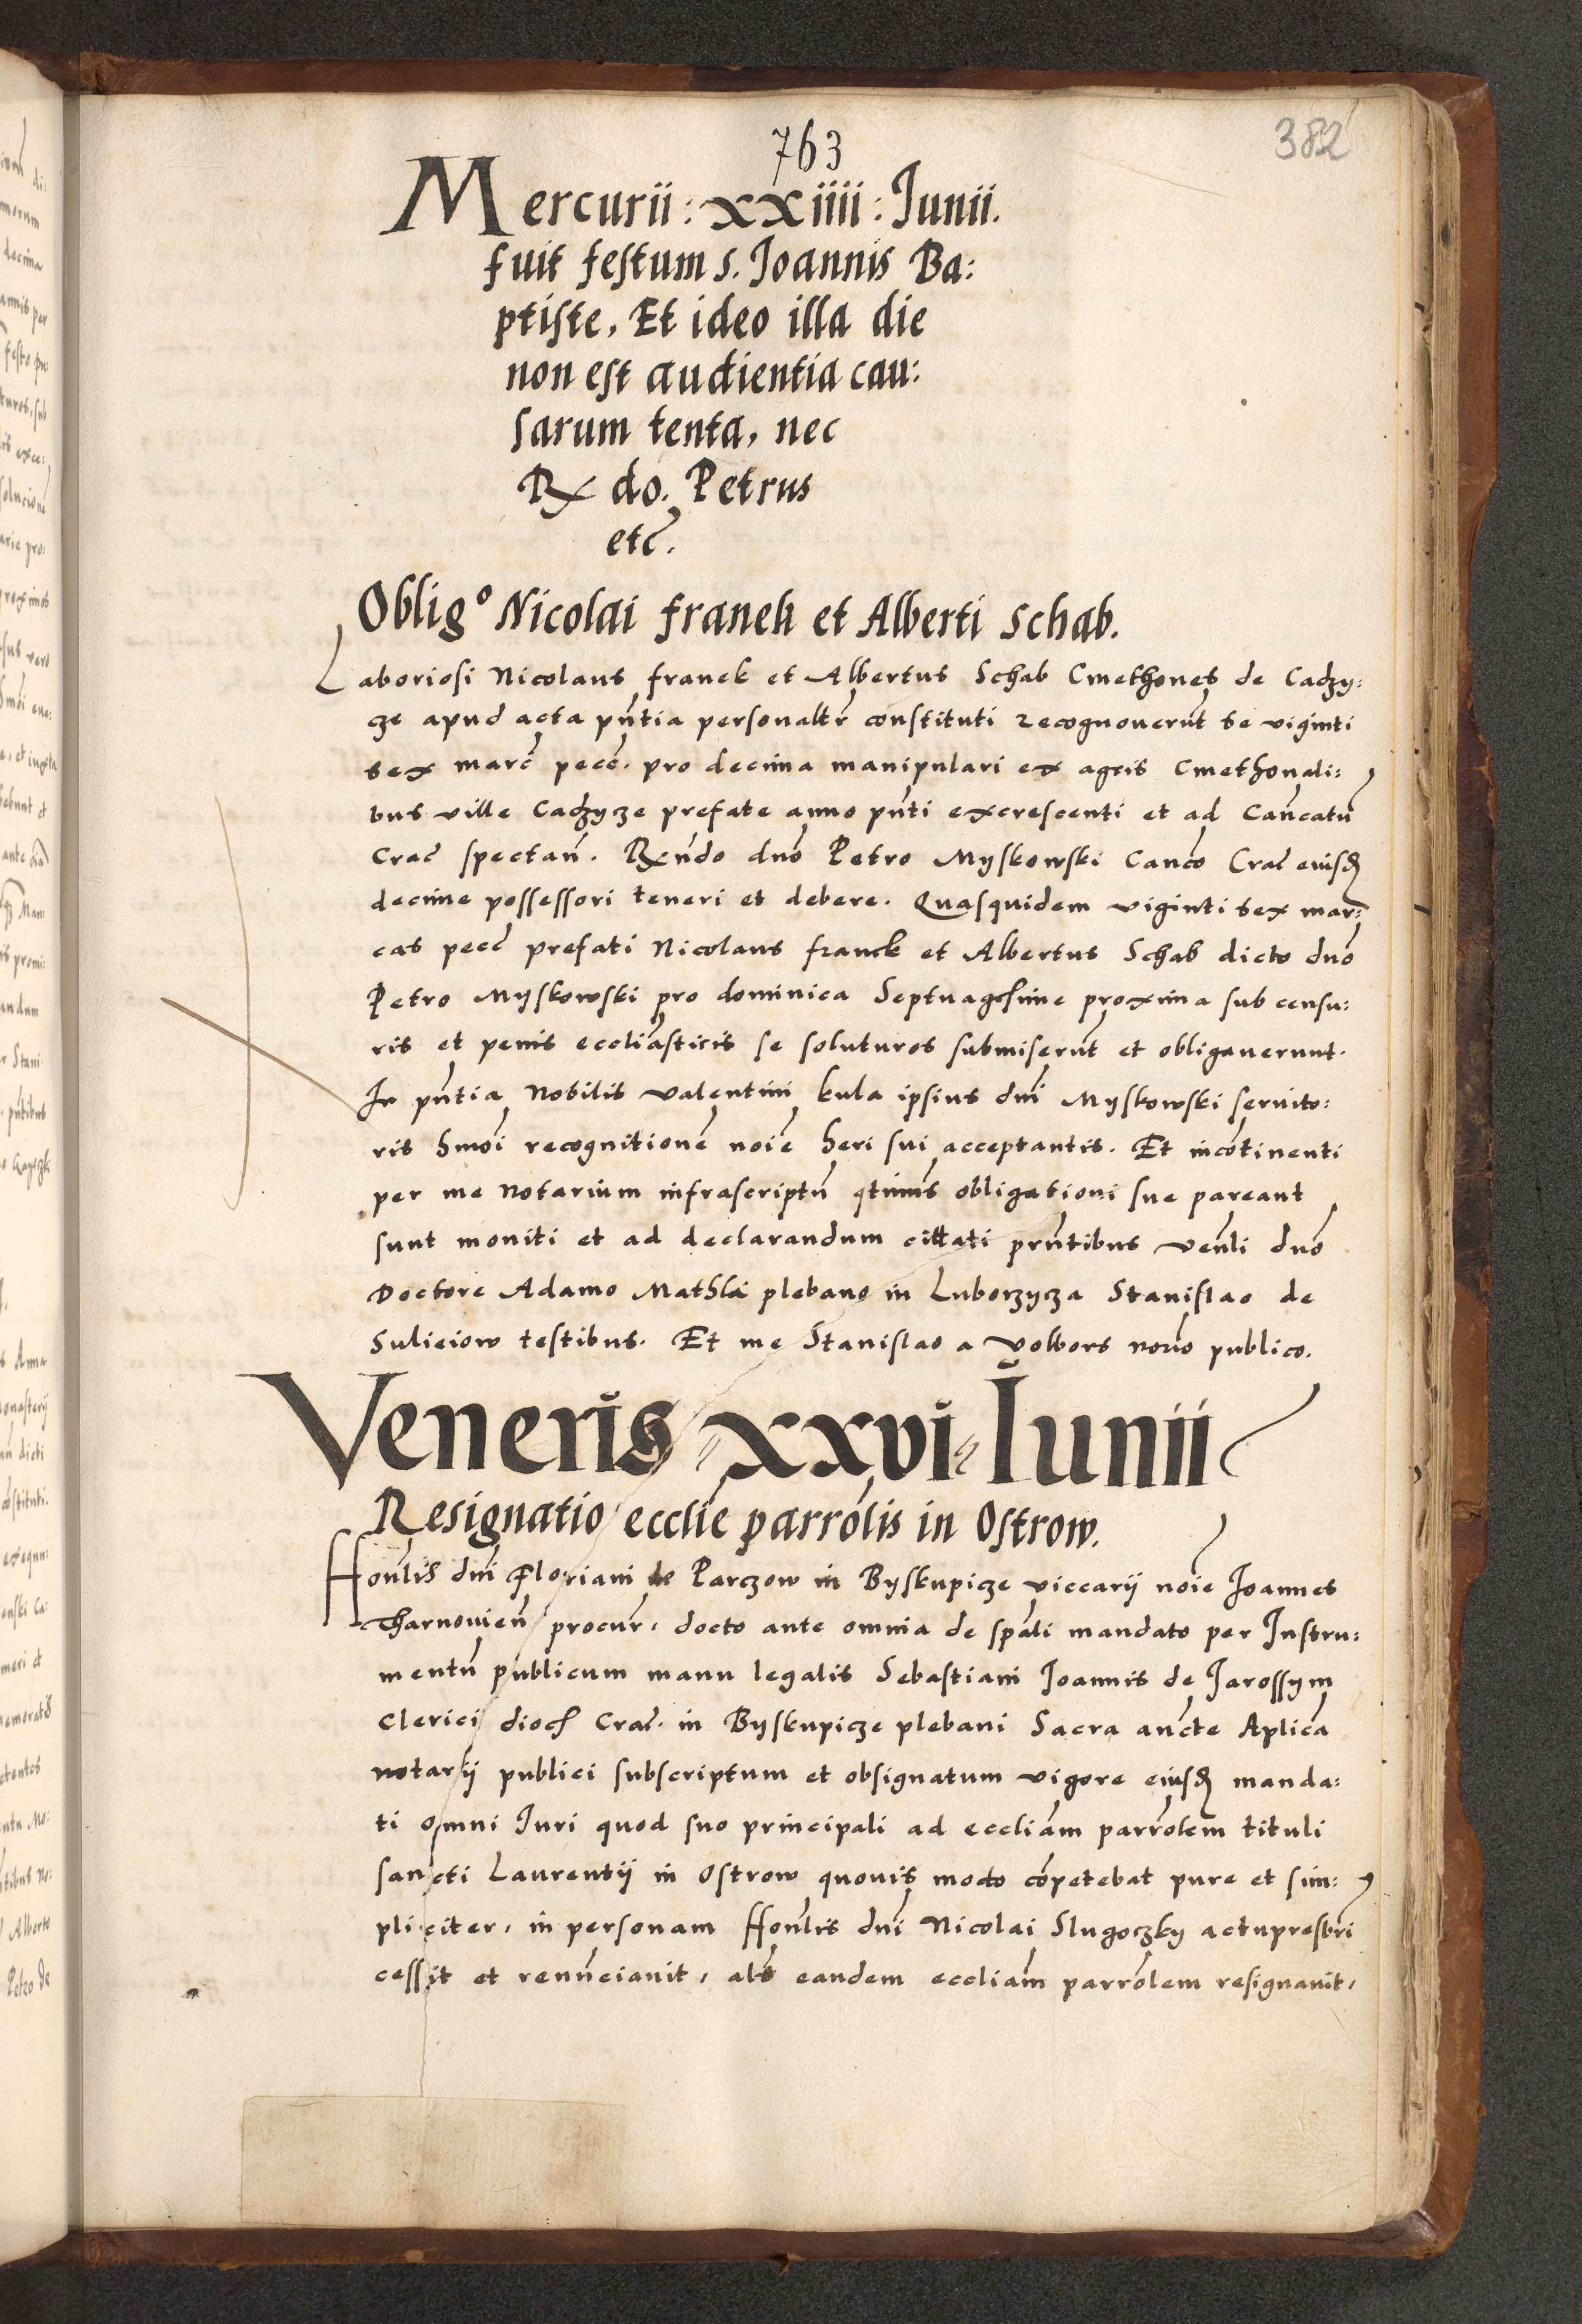 763
382
Mercurii : xxiiii : Junii.
fuit festum s. Joannis Ba:
ptiste, Et ideo illa die
non est audientia cau:
sarum tenta, nec
Rx do. Petrus
etc̃.
Oblig° Nicolai franek et Alberti Schab.
Laboriosi Nicolaus franek et Albertus Schab Cmethones de Cadzy:
cze apud acta pñtia personaltr̃ constituti recognoverũt se viginti
sex marc̃ pecc̃. pro decima manipulari ex agris Cmethonali:
bus ville Cadzycze prefate anno pñti excrescenti et ad Cañcatũ
Crac̃ spectañ. Rxñdo dño Petro Myskowski Canc̃o Crac̃ eiusd̃
decime possessori teneri et debere. Quasquidem viginti sex mar:
cas pecc̃ prefati Nicolaus franck et Albertus Schab dicto dño
Petro Myskowski pro dominica Septuagesime proxima sub censu:
ris et penis eccliãsticis se soluturos submiserũt et obligaverunt.
In pñtia Nobilis Valentini kula ipsius dñi Myskowski servito:
ris hmõi recognitionẽ noiẽ heri sui acceptantis. Et incõtinenti
per me Notarium infrascriptũ qtinũs obligationi sue pareant
sunt moniti et ad declarandum cittati prñtibus veñli dño
Doctore Adamo plebano in Luborzycza Stanislao de
Suliciow testibus. Et me Stanislao a Volbors noriõ publico.
Veneris xxvi Iunii
Resignatio ecclie parrolis in Ostrow.
Honĩlis dñi Floriani de Parczow in Byskupicze viccarii noiẽ Joannes
Tharnovieñ procur̃. docto ante omnia de spãli mandato per Instru:
mentũ publicum manu legalis Sebastiani Joannis de Jarossym
Clerici dioc̃ Crac̃. in Byskupicze plebani Sacra aucte Aplica
notarij publici subscriptum et obsignatum vigore eiusd̃ manda:
ti omni Juri quod suo principali ad eccliãm parrõlem tituli
sancti Laurentij in Ostrow quovis modo cõpetebat pure et sim:
pliciter, in personam Honĩlis dñi Nicolai Slugoczky actupresbri
cessit et renũciavit, als̃ eandem eccliãm parrõlem resignavit,